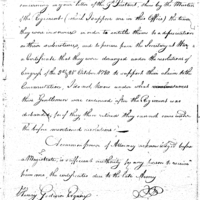 containing a list of the
of the Regiment (which I suppose are in this Office) the time
they were in service in order to entitle them to a depreciation
of their subsistence, and to procure from the Secretary of War,
a Certificate that they were deranged under the resolutions of
Congress of the 3d & 21st October 1780 to support their claim to the
Commutation, I do not know under what circumstances
these Gentlemen was returned after the Regiment was
deranged, for if they then retired they will come under
the before mentioned resolutions.
A common power of Attorney acknowledged before
a Magistrate, is a sufficient authority for any person to receive
from me, the certificates due to the late Army
Esquire